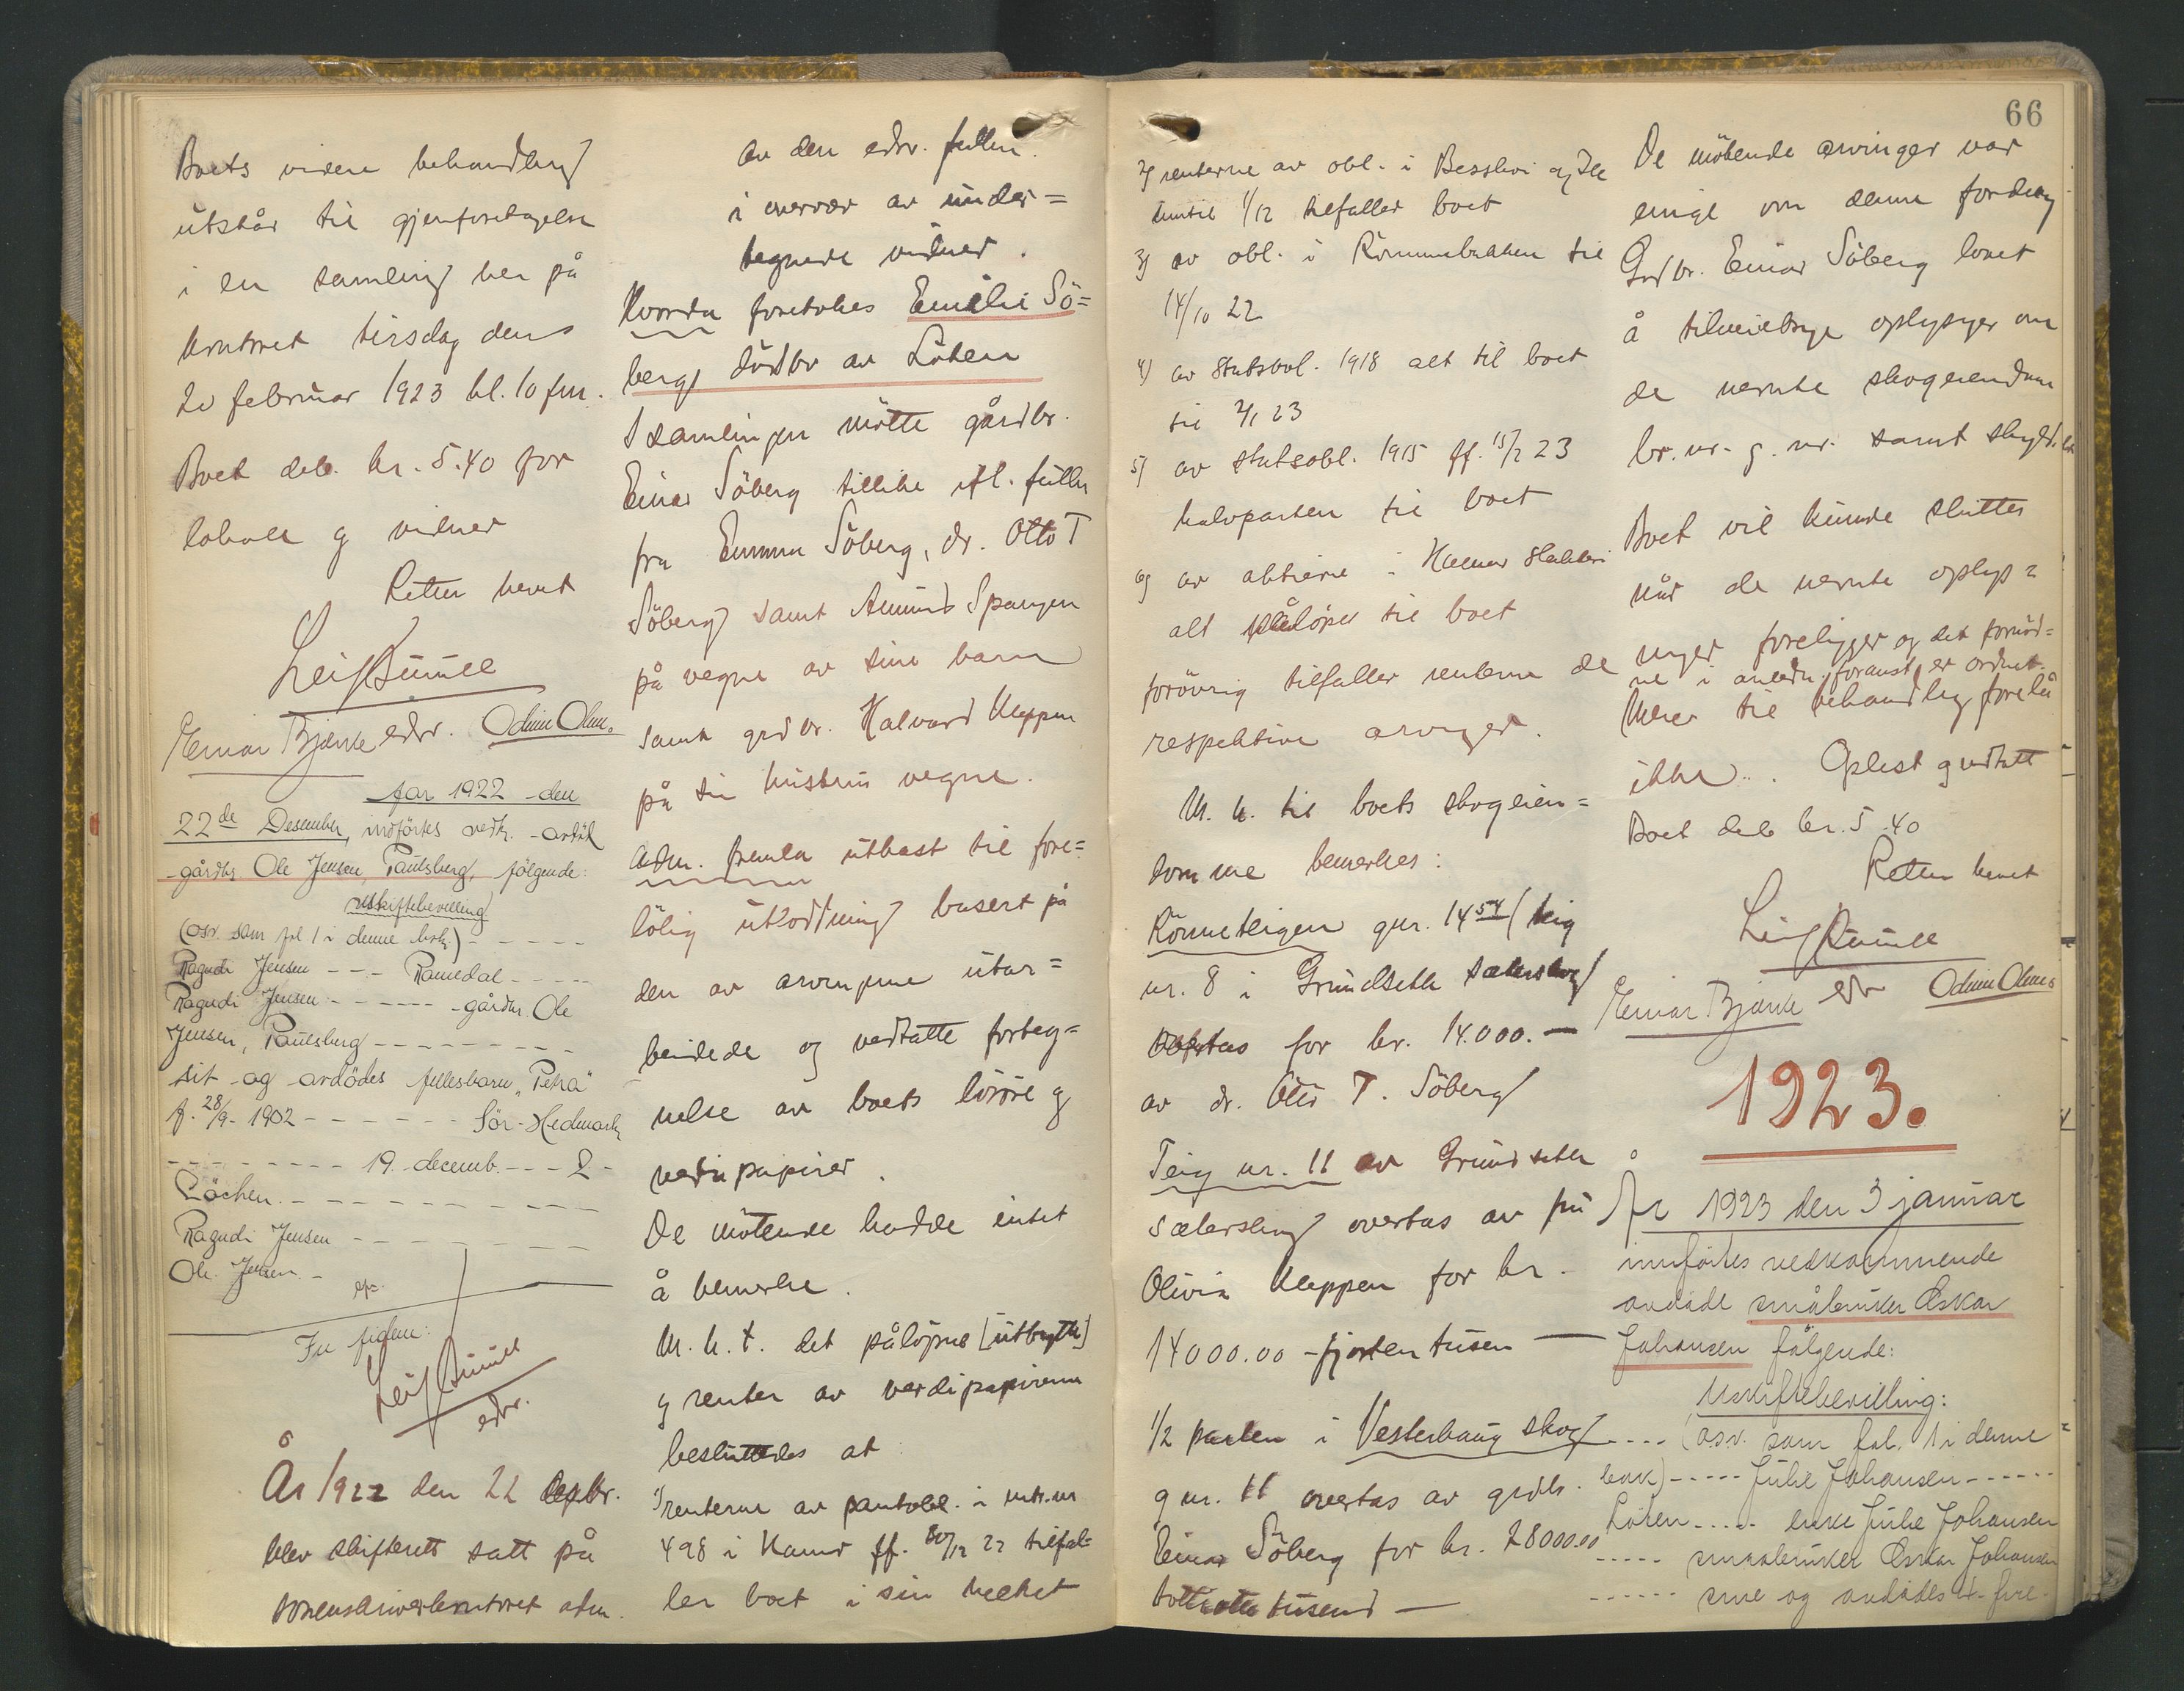 Boets videre behandling
utstår til gjenforetagelse
i en samling her på
kontoret tirsdag den
20 februar 1923 kl. 10 fm.
Boet deb. kr. 5.40 for
lokale og vidner
Retten hevet
Einar Bjørke edsv. Odin Olsen
År 1922 den
22de Desember, indførtes vedk. avdøde
gårdbr. Ole Jensen, Paulsberg, følgende:
uskiftebevilling
(osv. som fol 1 i denne bok) - - - - -
Ragndi Jensen - - - Romedal - - - -
Ragndi Jensen - - - - - - gårdbr. Ole
Jensen, Paulsberg - - - - - - - -
sit og avdødes fellesbarn "Petra"
f. 28/9-1902 - - - - - - Sør-Hedmark
- - - - - - - - 19. decemb. - - - 2 -
Löchen. - - - - - - - - - -
Ragndi Jensen - - - - - - -
Ole Jensen. -
In fidem:
edsv.
År 1922 den 22 desbr.
blev skifterett satt på
sorenskriverkontoret adm.
av den edsv. fullm.
i overvær av under=
tegnede vidner.
Hvorda foretokes Emilie Sö=
berg dødsbo av Löten
I samlingen møtte gårdbr.
Einar Söberg tillike ifl. fullm
fra Emma Söberg, dr. Otto T
Söberg samt Amund Spangen
på vegne av sine barn
samt grdbr. Halvard Kleppen
på sin hustrus vegne.
Adm. fremla utkast til fore=
løbig utlodning basert på
den av arvingene utar=
beidede og vedtatte forteg=
nelse av boets løsøre og
verdipapirer.
De møtende hadde intet
å bemerke.
M. h. t. det påløpne [utbytte]
og renter av verdipapirerne
besluttedes at:
1) renterne av pantobl. i mtr. nr
498 i Hamar ff. 30/12 22 tilfal=
ler boet i sin helhet
66
2) renterne av obl. i
inntil 1/12 tilfaller boet
3) av obl. i Rømmebakken til
14/10 22
4) av statsobl. 1918 alt til boet
til 2/1 23
5) av statsobl. 1915 ff. 15/2 23
halvparten til boet
6) av aktiene i Hamar Slakteri
alt påløpet til boet
forøvrig tilfaller renterne de
respektive arvinger.
M. h. til boets skogeien=
domme bemerkes:
Rönneteigen gnr. 14 54 (teig
nr. 8 i Grundsetth sæterskog)
overtas for kr. 14.000.—
av dr. Otto T. Söberg
Teig nr. 11 av Grundsetth
sæterskog overtas av fru
Olivia Kleppen for kr.
14000.00 - fjorten tusen —
1/2 parten i Vesterhaug skog
gnr. 11 overtas av grdbr.
Einar Söberg for kr. 28000.00
tottiotte tusend —
De møtende arvinger var
enige om denne fordeling
Grdbr. Einar Söberg lovet
å tilveiebringe oplysninger om
de nevnte skogeiendomme
br. nr. g. nr. samt skyld.
Boet vil kunde sluttes
når de nevnte oplys=
ninger foreligger og det fornød=
ne i anledn. foranst. er ordnet.
Mere til behandling forelå
ikke. Oplest og vedtatt
Boet deb kr. 5.40
Retten hevet
Einar Bjørke edsv Odin Olsen
1923.
År 1923 den 3 januar
innførtes vedkommende
avdøde småbruker Oskar
Johansen følgende:
Uskiftebevilling:
- - - - (osv. som fol. 1 i denne
bok) - - - - - Julie Johansen - - - - - -
Løten - - - - - enke Julie Johansen
- - - - - smaabruker Oskar Johansen
- - - - - sine og avdødes 4 - fire -